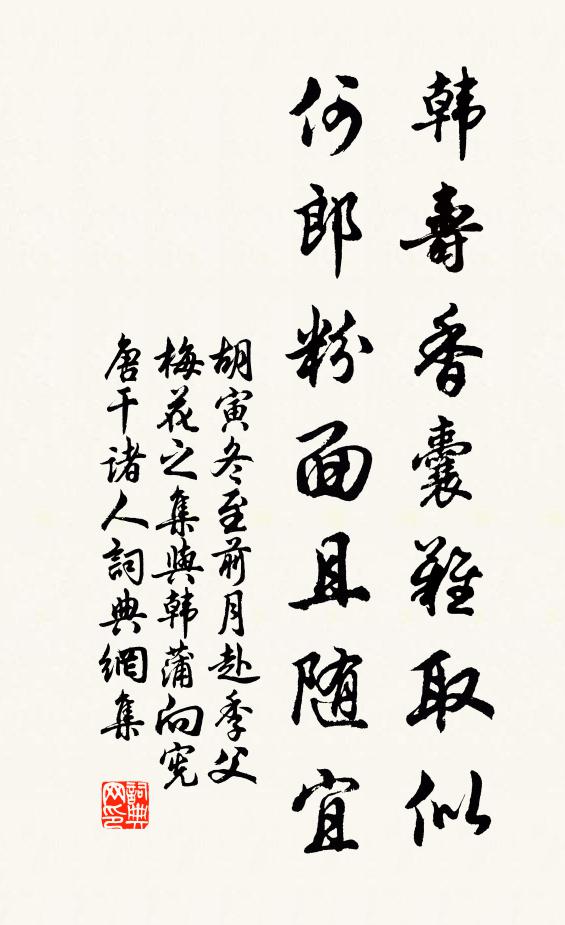 韩壽香囊難取似
何郎粉面且随宜
胡寅冬至前月赴季父
梅花之集與韩蒲向憲
唐干诸人詞典網集
詞典网印